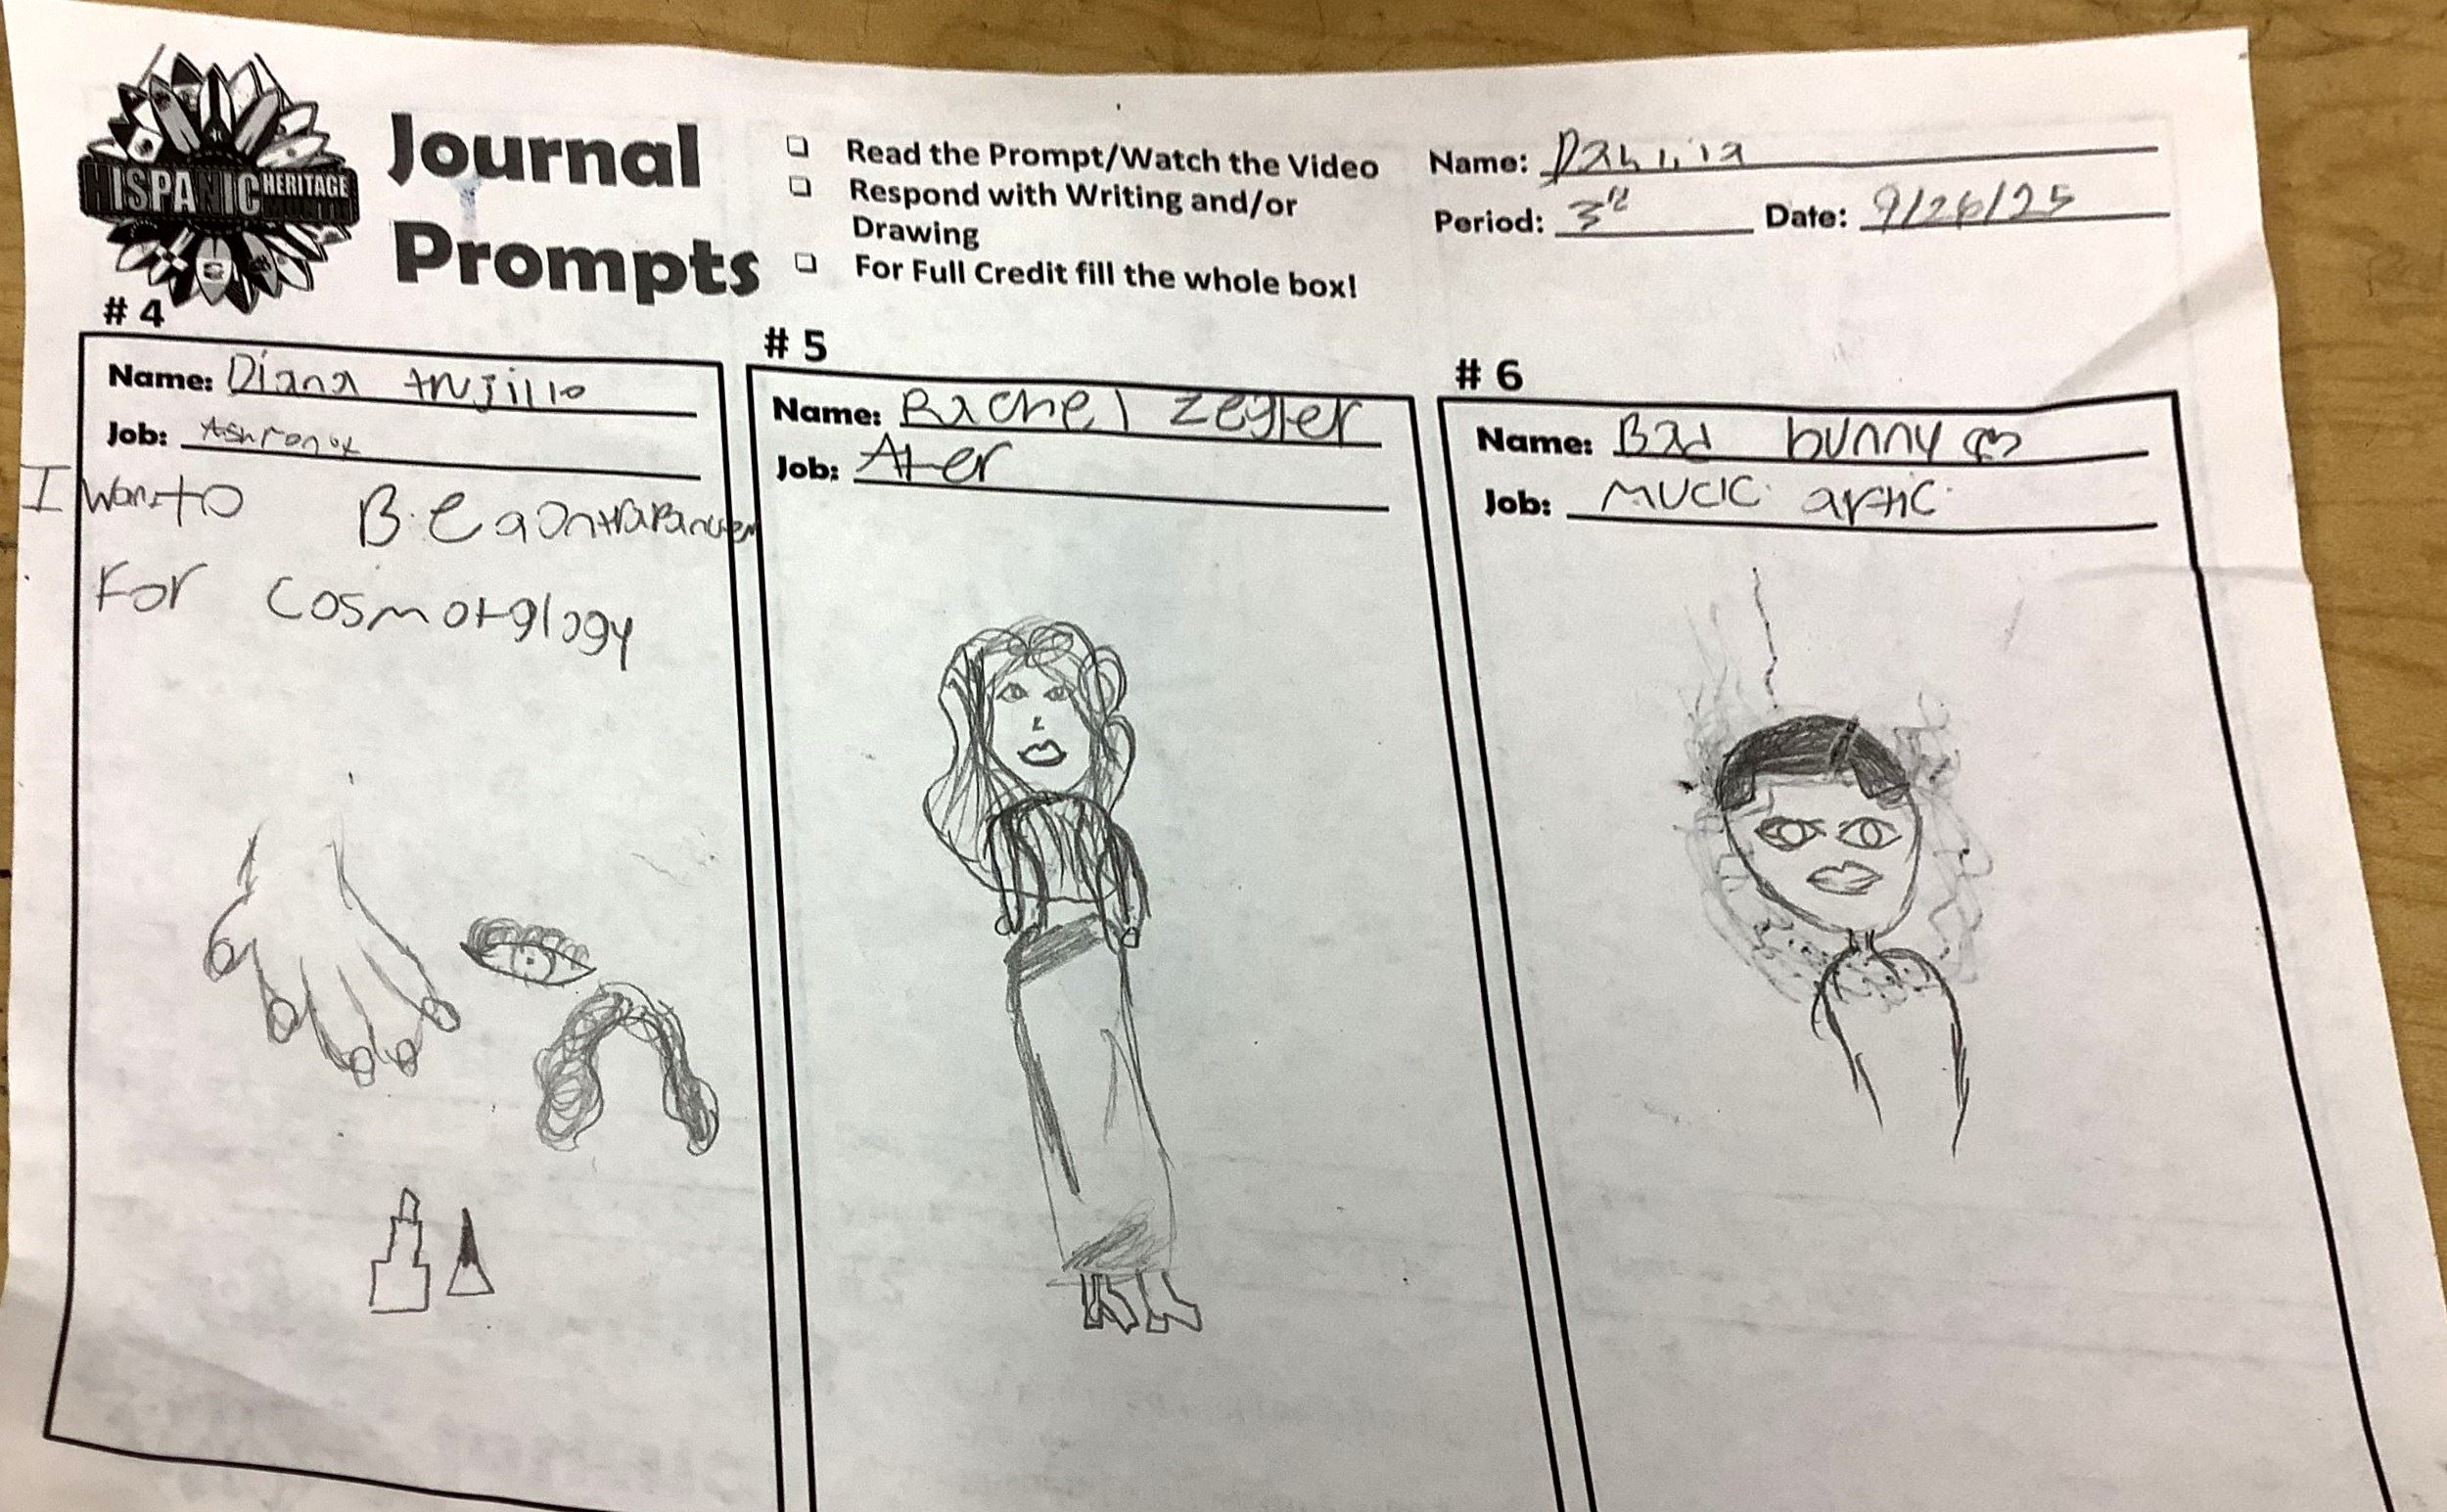 HISPANIC HERITAGE
MONTH
Journal
Prompts
❏ Read the Prompt/Watch the Video
❏ Respond with Writing and/or
Drawing
❏ For Full Credit fill the whole box!
Name: Dahlia
Period: 3rd Date: 9/26/25
# 4
Name: Diana trujillo
Job:
I Want to B.e a
For Cosmotglogy
# 5
Name: Rachel Zegler
Job: Ater
# 6
Name: Bad bunny
Job: Mucic artic